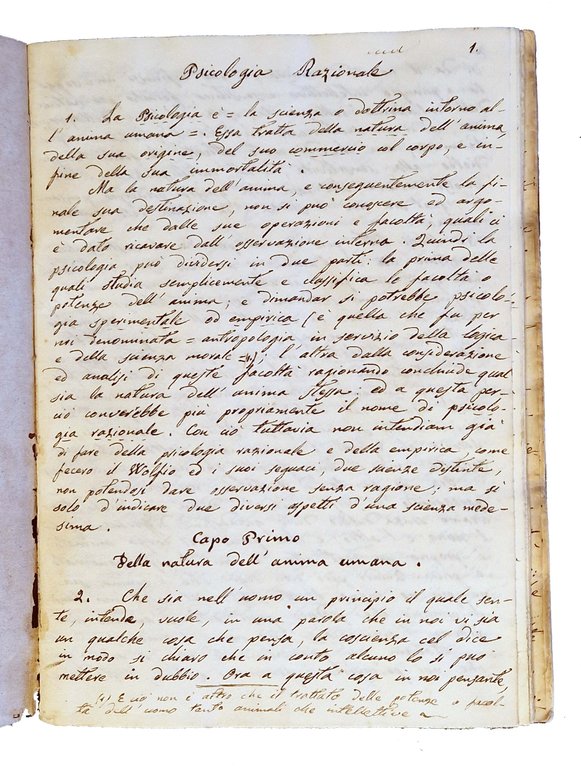 1.
Psicologia Razionale
1. La Psicologia è = la scienza o dottrina intorno al-
l'anima umana =. Essa tratta della natura dell'anima,
della sua origine, del suo commercio col corpo, e in-
fine della sua immortalità.
Ma la natura dell'anima, e conseguentemente la fi-
nale sua destinazione, non si può conoscere ed argo-
mentare che dalle sue operazioni e facoltà, quali ci
è dato ricavare dall'osservazione interna. Quindi la
psicologia può dividersi in due parti: la prima delle
quali studia semplicemente e classifica le facoltà o
potenze dell'anima; e dimandar si potrebbe psicolo-
gia sperimentale od empirica (è quella che fu per
noi denominata = antropologia, in servizio della logica
e della scienza morale =); l'altra dalla considerazione
ed analisi di queste facoltà ragionando conchiude qual
sia la natura dell'anima stessa: ed a questa per-
ciò converrebbe più propriamente il nome di psicolo-
gia razionale. Con ciò tuttavia non intendiam già
di fare della psicologia razionale e della empirica, come
fecero il Wolfio ed i suoi seguaci, due scienze distinte,
non potendosi dare osservazione senza ragione; ma si
solo d'indicare due diversi aspetti d'una scienza mede-
sima.
Capo Primo
Della natura dell'anima umana.
2. Che sia nell'uomo un principio il quale sen-
te, intende, vuole, in una parola che in noi vi sia
un qualche cosa che pensa, la coscienza cel dice
in modo sì chiaro che in conto alcuno lo si può
mettere in dubbio. Ora a questa cosa in noi pensante,
(*) E ciò non è altro che il trattato delle potenze o facol-
tà dell'uomo tanto animali che intellettive